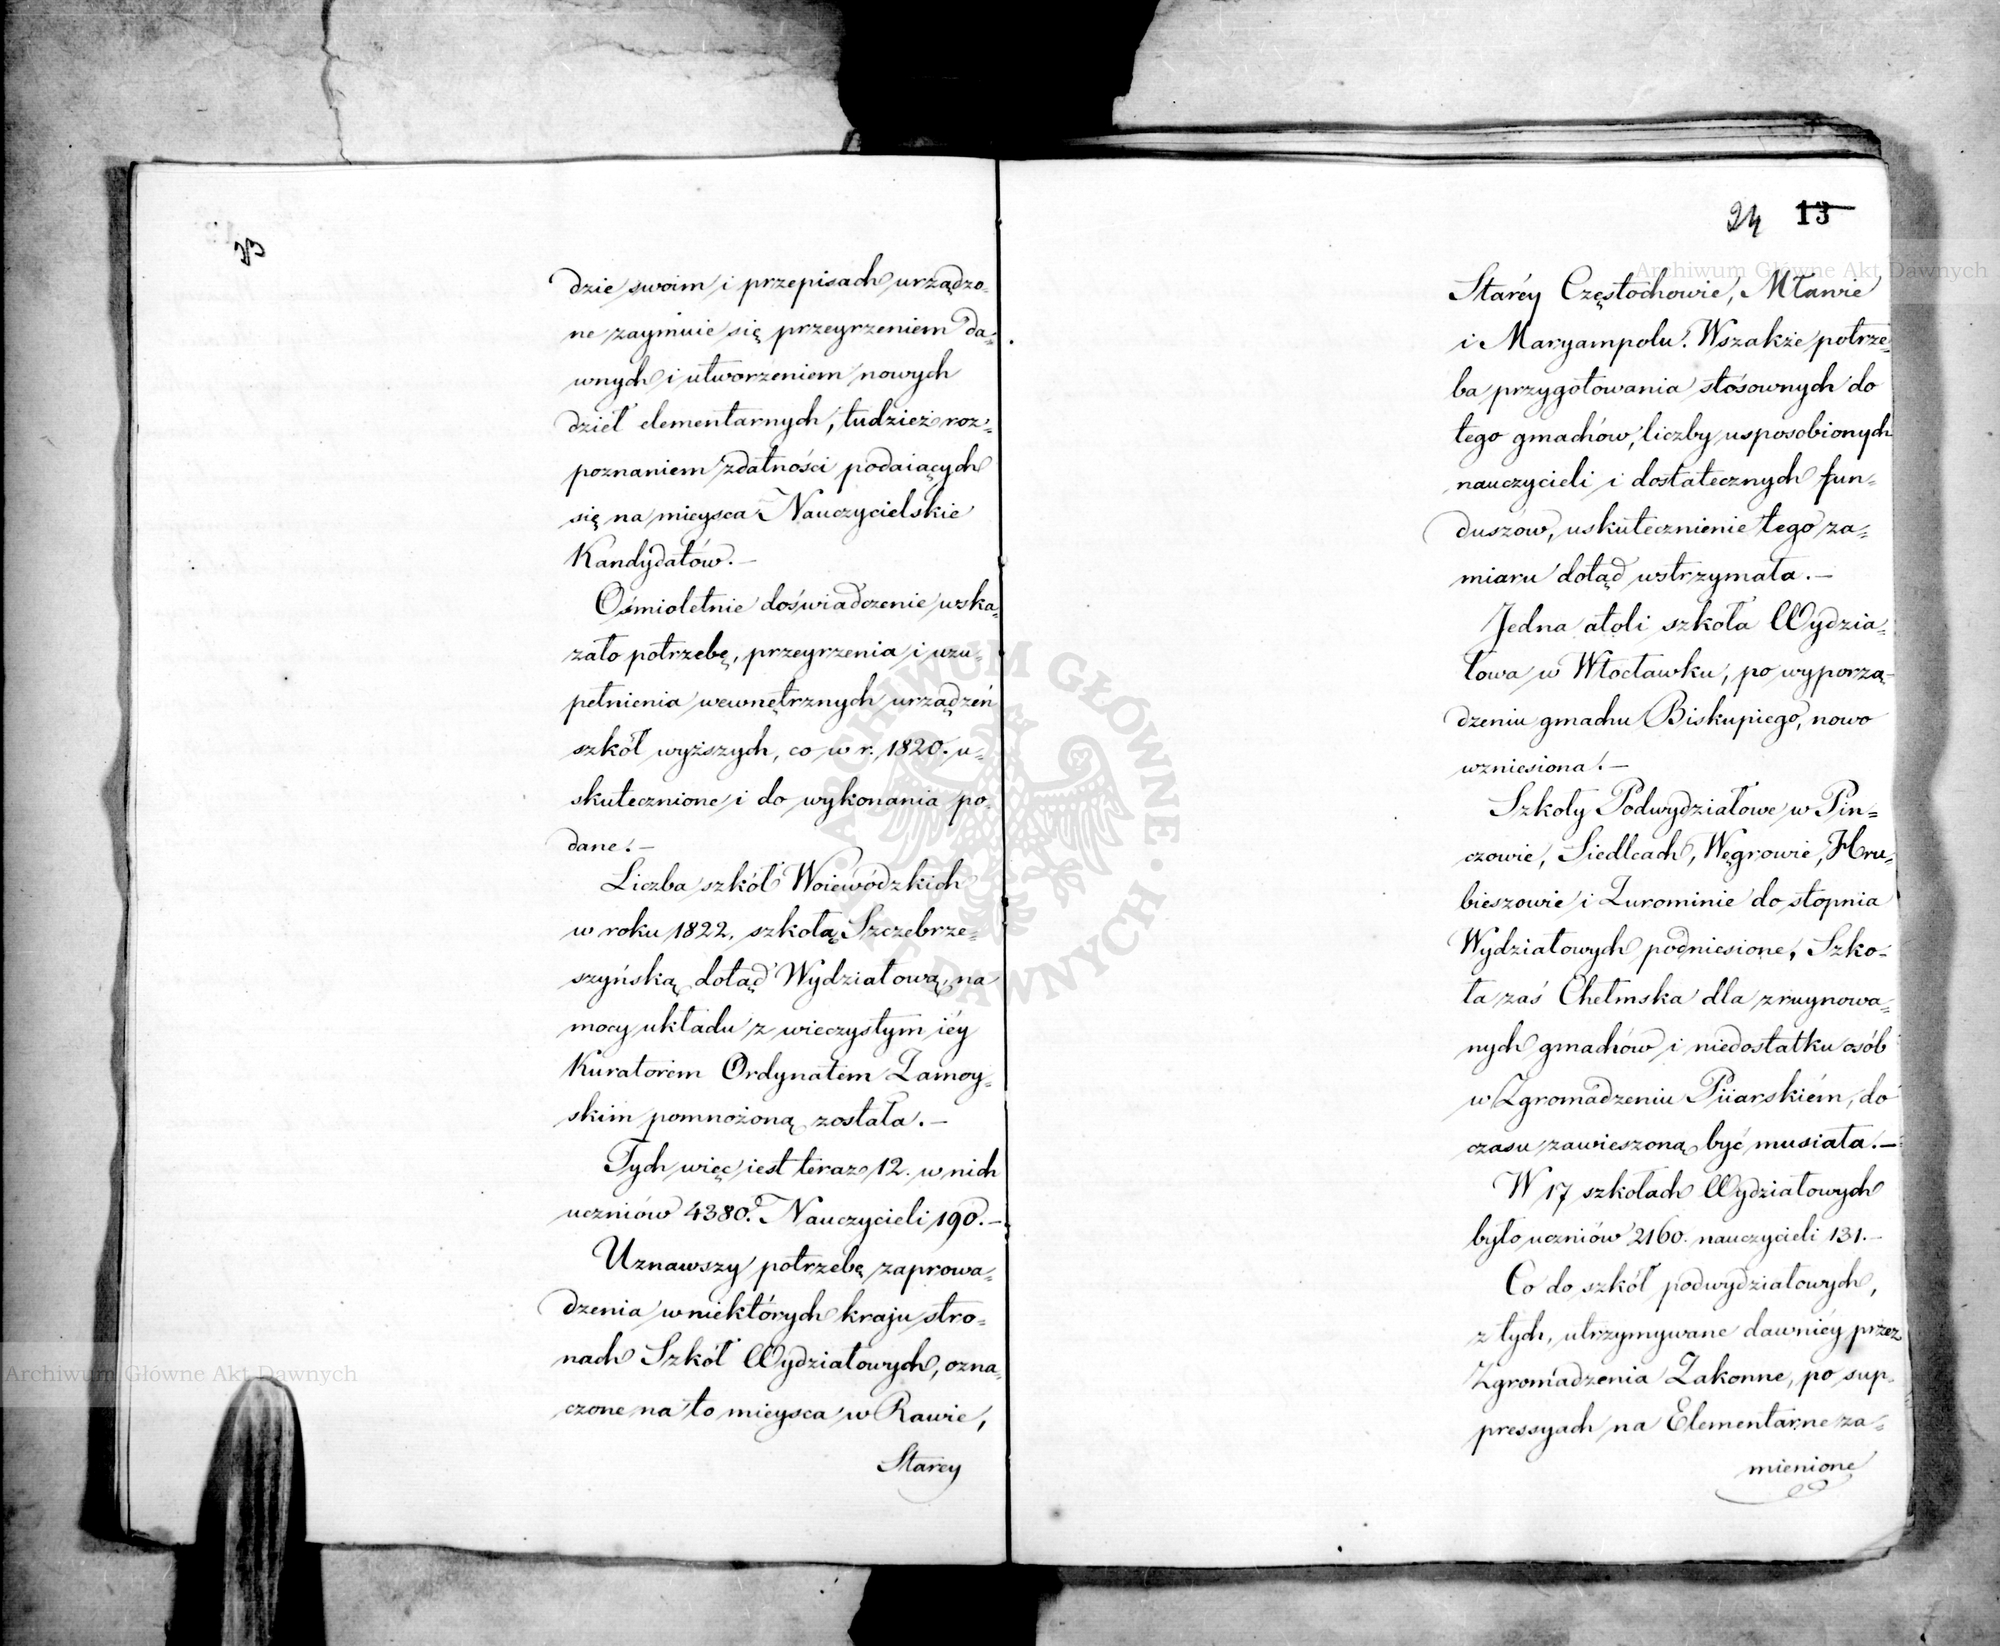 23
dzie swoim i przepisach urządzo-
ne zaymuie się przeyrzeniem da-
wnych i utworzeniem nowych
dzieł elementarnych, tudzież roz-
poznaniem zdatności podaiących
się na mieysca Nauczycielskie
Kandydatów. —
Ośmioletnie doświadczenie wska-
zało potrzebę, przeyrzenia i uzu-
pełnienia wewnętrznych urządzeń
szkół wyższych, co w r. 1820. u-
skutecznione i do wykonania po-
dane. —
Liczba szkół Woiewódzkich
w roku 1822. szkołą Szczebrze-
szyńską dotąd Wydziałową, na
mocy układu z wieczystym iéy
Kuratorem Ordynatem Zamoy-
skim pomnożoną została. —
Tych więc iest teraz 12. w nich
uczniów 4380. Nauczycieli 190. —
Uznawszy potrzebę zaprowa-
dzenia w niektórych kraju stro-
nach Szkół Wydziałowych, ozna-
czone na to mieysca w Rawie,
Starey
24 13
Staréy Częstochowie, Mławie
i Maryampolu. Wszakże potrze-
ba przygotowania stósownych do
tego gmachów, liczby usposobionych
nauczycieli i dostatecznych fun-
duszów, uskutecznienie tego za-
miaru dotąd wstrzymała. —
Jedna atoli szkoła Wydzia-
łowa w Włocławku, po wyporzą-
dzeniu gmachu Biskupiego, nowo
wzniesiona. —
Szkoły Podwydziałowe w Pin-
czowie, Siedlcach, Węgrowie, Hru-
bieszowie i Zurominie do stopnia
Wydziałowych podniesione, Szko-
ła zaś Chełmska dla zruynowa-
nych gmachów i niedostatku osób
w Zgromadzeniu Piiarskiém, do
czasu zawieszoną być musiała. —
W 17 szkołach Wydziałowych
było uczniów 2160. nauczycieli 131. —
Co do szkół podwydziałowych,
z tych, utrzymywane dawniéy przez
Zgromadzenia Zakonne, po sup-
pressyach na Elementarne za-
mienione
Archiwum Główne Akt Dawnych
Archiwum Główne Akt Dawnych
ARCHIWUM GŁÓWNE AKT DAWNYCH